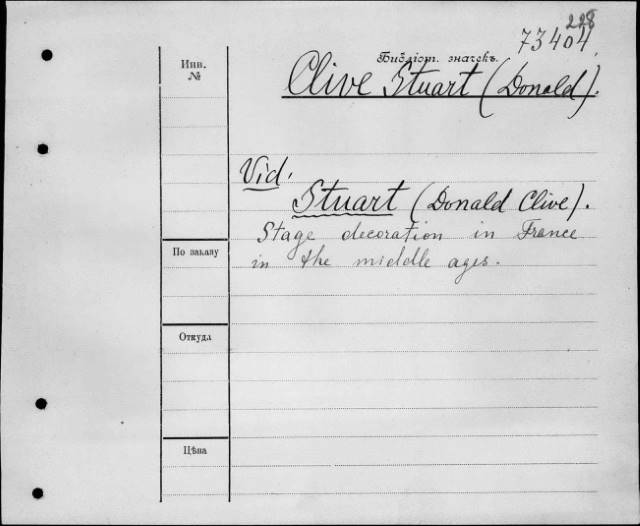 228
73404
Инв.
№
Библіот. значекъ.
Clive Stuart (Donald).
Vid.
Stuart (Donald Clive).
Stage decoration in France
in the middle ages.
По заказу
Откуда
Цѣна